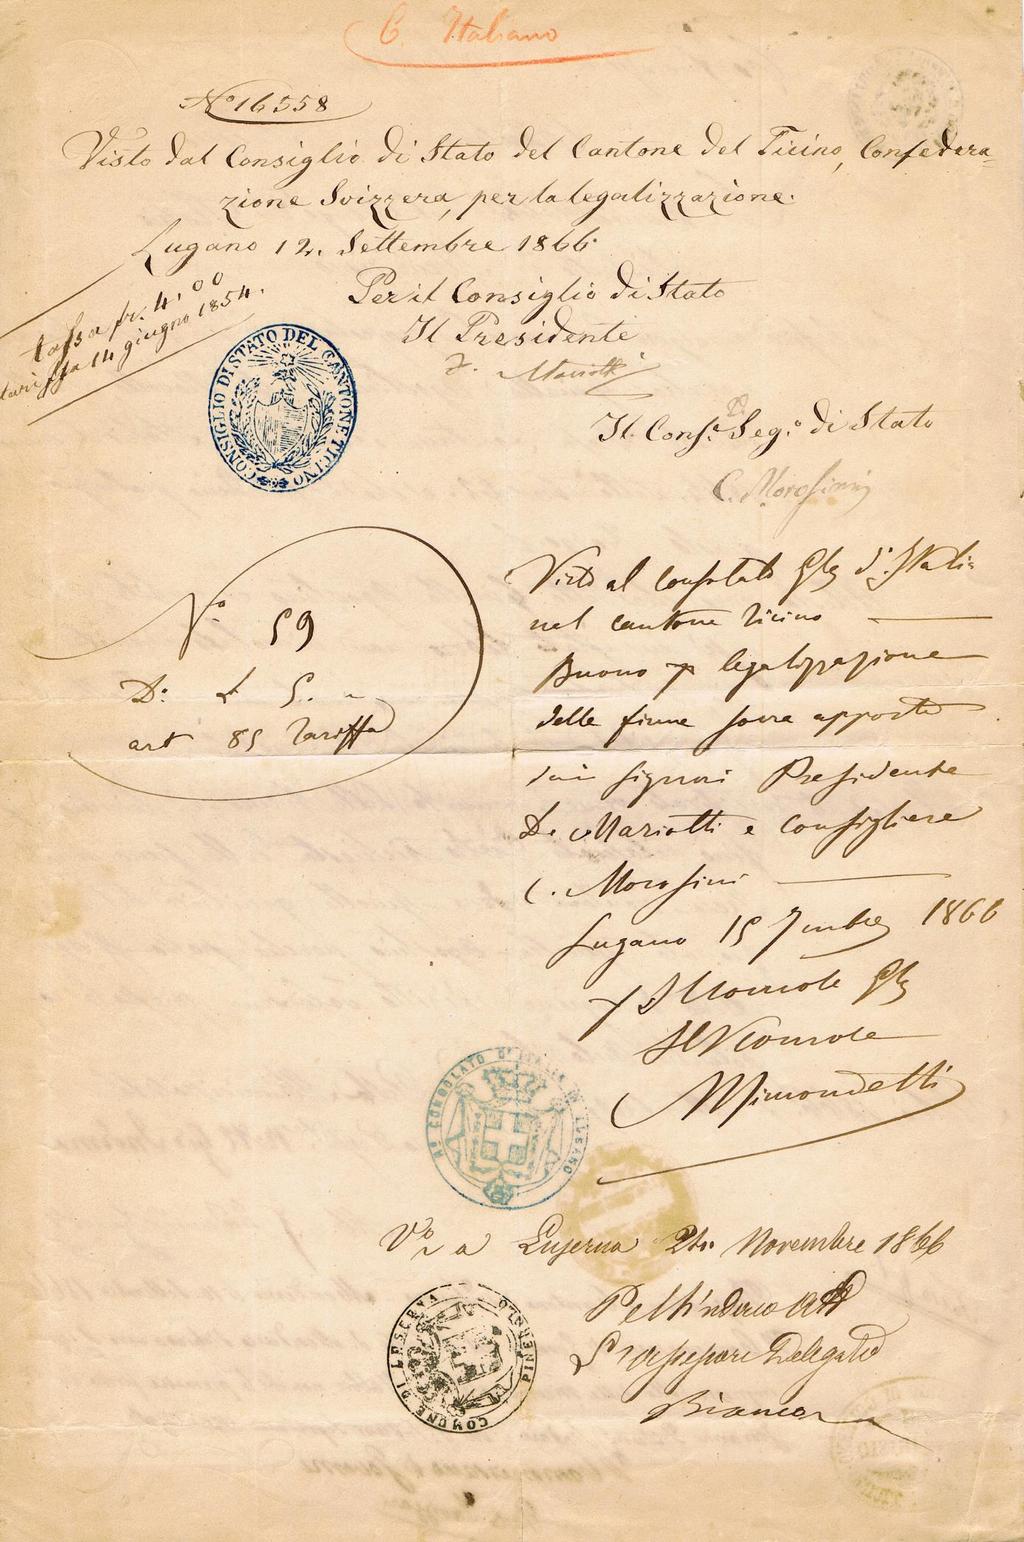 C. Italiano
N.º 16558
Visto dal Consiglio di Stato del Cantone del Ticino, Confedera=
zione Svizzera, per la legalizzazione.
Lugano 12. Settembre 1866
tassa fr. 4.00
tariffa 14 giugno 1854.
Per il Consiglio di Stato
Il Presidente
Mariotti
CONSIGLIO DI STATO DEL CANTONE TICINO
Il Cons.e Seg.o di Stato
C. Morosini
N.º 59
D.º L 5.
art 85 Tariffa
Visto al consolato Gle d'Italia
nel cantone Ticino
Buono p legalizzazione
delle firme sovra apposte
dai signori Presidente
D. Mariotti e Consigliere
C. Morosini
Lugano 15 7mbre 1866
p Il Console Gle
Il V Console
CONSOLATO D'ITALIA IN LUGANO
V.º a Luserna 24 Novembre 1866
Pell Sindaco
L'Assessore Delegato
COMUNE DI LUSERNA
PINEROLO